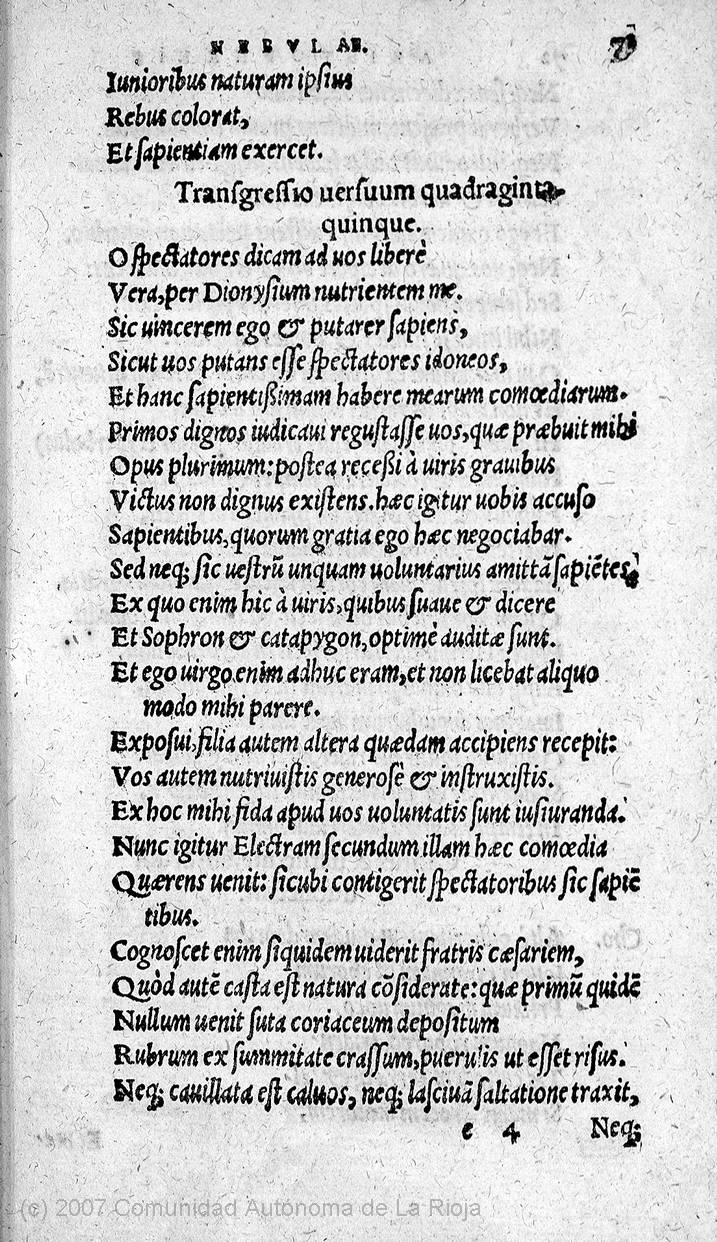 NEBVLAE.
Iunioribus naturam ipsius
Rebus colorat,
Et sapientiam exercet.
Transgressio uersuum quadraginta
quinque.
O spectatores dicam ad uos liberè
Vera, per Dionysium nutrientem me.
Sic uincerem ego & putarer sapiens,
Sicut uos putans esse spectatores idoneos,
Et hanc sapientißimam habere mearum comœdiarum.
Primos dignos iudicaui regustasse uos, quæ præbuit mihi
Opus plurimum: postea receßi à uiris grauibus
Victus non dignus existens. hæc igitur uobis accuso
Sapientibus, quorum gratia ego hæc negociabar.
Sed neq; sic uestrū unquam uoluntarius amittā sapiētes.
Ex quo enim hic à uiris, quibus suaue & dicere
Et Sophron & catapygon, optimè auditæ sunt.
Et ego uirgo enim adhuc eram, et non licebat aliquo
modo mihi parere.
Exposui, filia autem altera quædam accipiens recepit:
Vos autem nutriuistis generosè & instruxistis.
Ex hoc mihi fida apud uos uoluntatis sunt iusiuranda.
Nunc igitur Electram secundum illam hæc comœdia
Quærens uenit: sicubi contigerit spectatoribus sic sapiē
tibus.
Cognoscet enim siquidem uiderit fratris cæsariem,
Quòd autē casta est natura cōsiderate: quæ primū quidē
Nullum uenit suta coriaceum depositum
Rubrum ex summitate crassum, puerulis ut esset risus.
Neq; cauillata est caluos, neq; lasciuā saltatione traxit,
e 4 Neq;
(c) 2007 Comunidad Autónoma de La Rioja